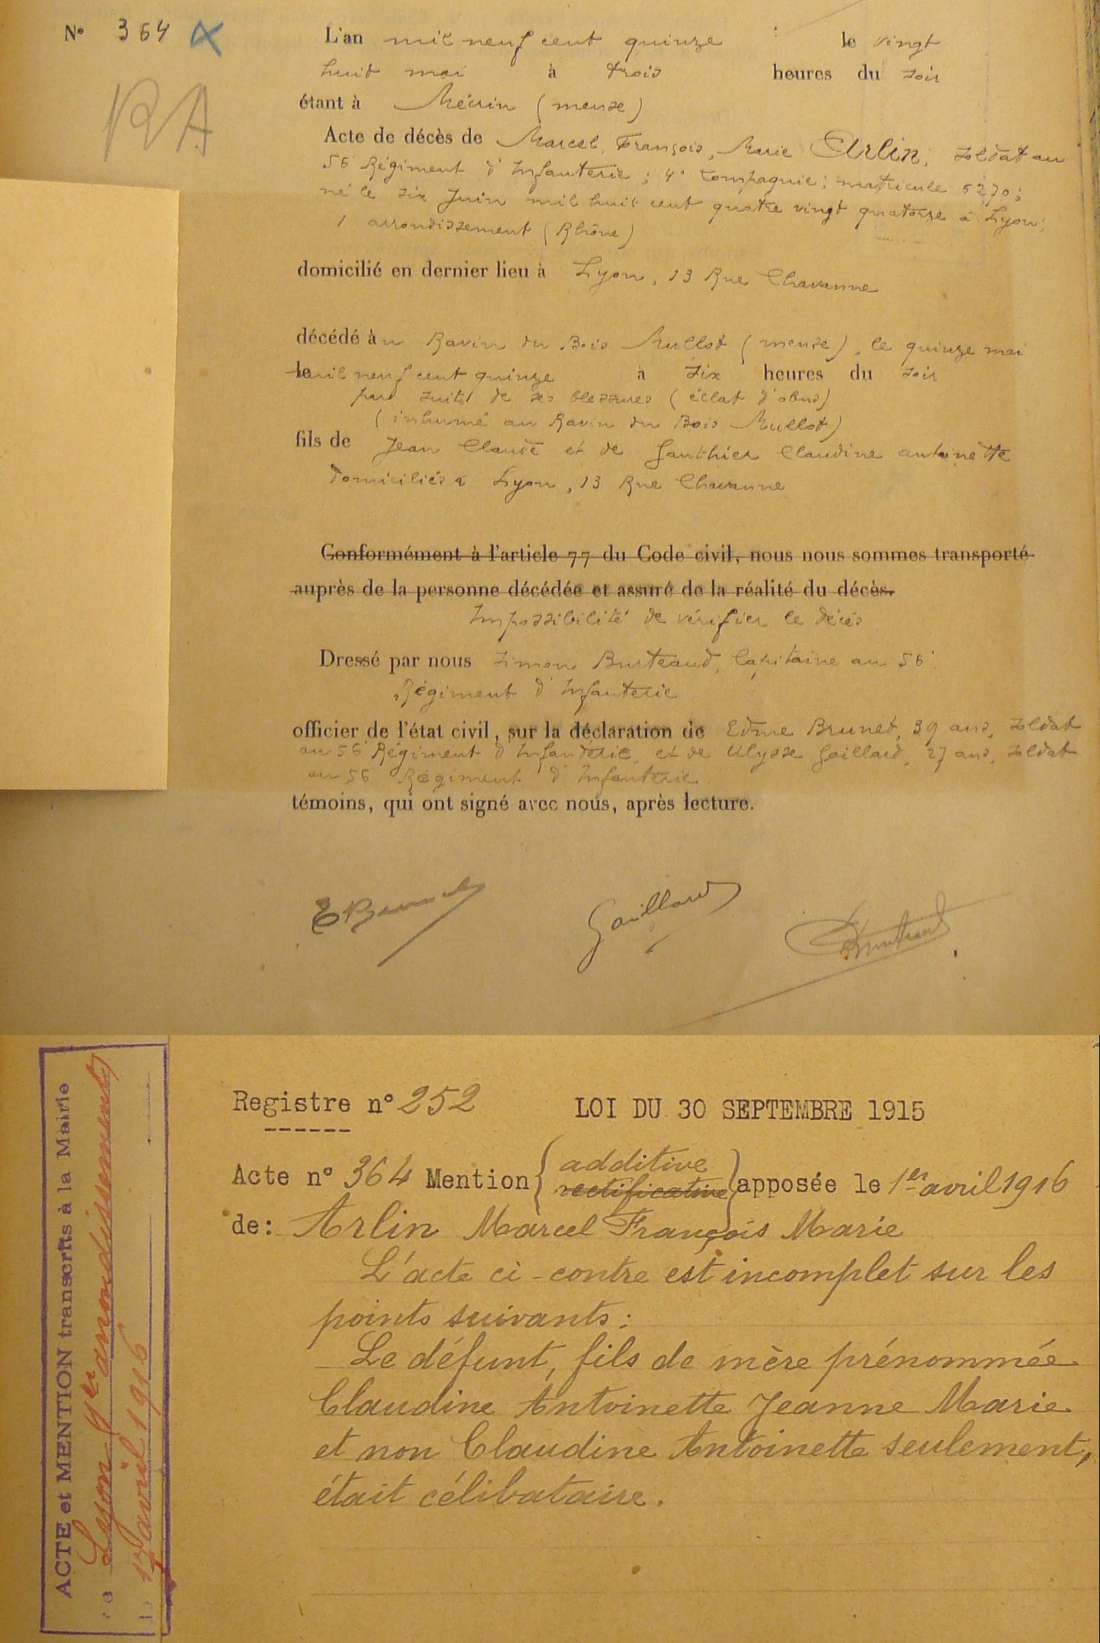 N° 364
RA
L'an mil neuf cent quinze le vingt
huit mai à trois heures du soir
étant à Mécrin (meuse)
Acte de décès de Marcel, François, Marie Arlin, soldat au
56 Régiment d'Infanterie; 4e Compagnie; matricule 5270;
né le six Juin mil huit cent quatre vingt quatorze à Lyon;
1 arrondissement (Rhône)
domicilié en dernier lieu à Lyon, 13 Rue Chavanne
décédé au Ravin du Bois Mullot (meuse), le quinze mai
le mil neuf cent quinze à six heures du soir
par suite de ses blessures (éclat d'obus)
(inhumé au Ravin du Bois Mullot)
fils de Jean Claude et de Gauthier Claudine antoinette
domiciliés à Lyon, 13 Rue Chavanne
Conformément à l'article 77 du Code civil, nous nous sommes transporté
auprès de la personne décédée et assuré de la réalité du décès.
Impossibilité de vérifier le décès
Dressé par nous Simon Burteaud, Capitaine au 56
Régiment d'Infanterie
officier de l'état civil, sur la déclaration de Edme Brunet, 39 ans, soldat
au 56 Régiment d'Infanterie, et de Ulysse Gaillard, 27 ans, soldat
au 56 Régiment d'Infanterie.
témoins, qui ont signé avec nous, après lecture.
E Brunet Gaillard Burteaud
ACTE et MENTION transcrits à la Mairie
Lyon 1er arrondissement
17 avril 1916
Registre n° 252 LOI DU 30 SEPTEMBRE 1915
Acte n° 364 Mention { additive rectificative } apposée le 1er avril 1916
de: Arlin Marcel François Marie
L'acte ci-contre est incomplet sur les
points suivants:
Le défunt, fils de mère prénommée
Claudine Antoinette Jeanne Marie
et non Claudine Antoinette seulement,
était célibataire.